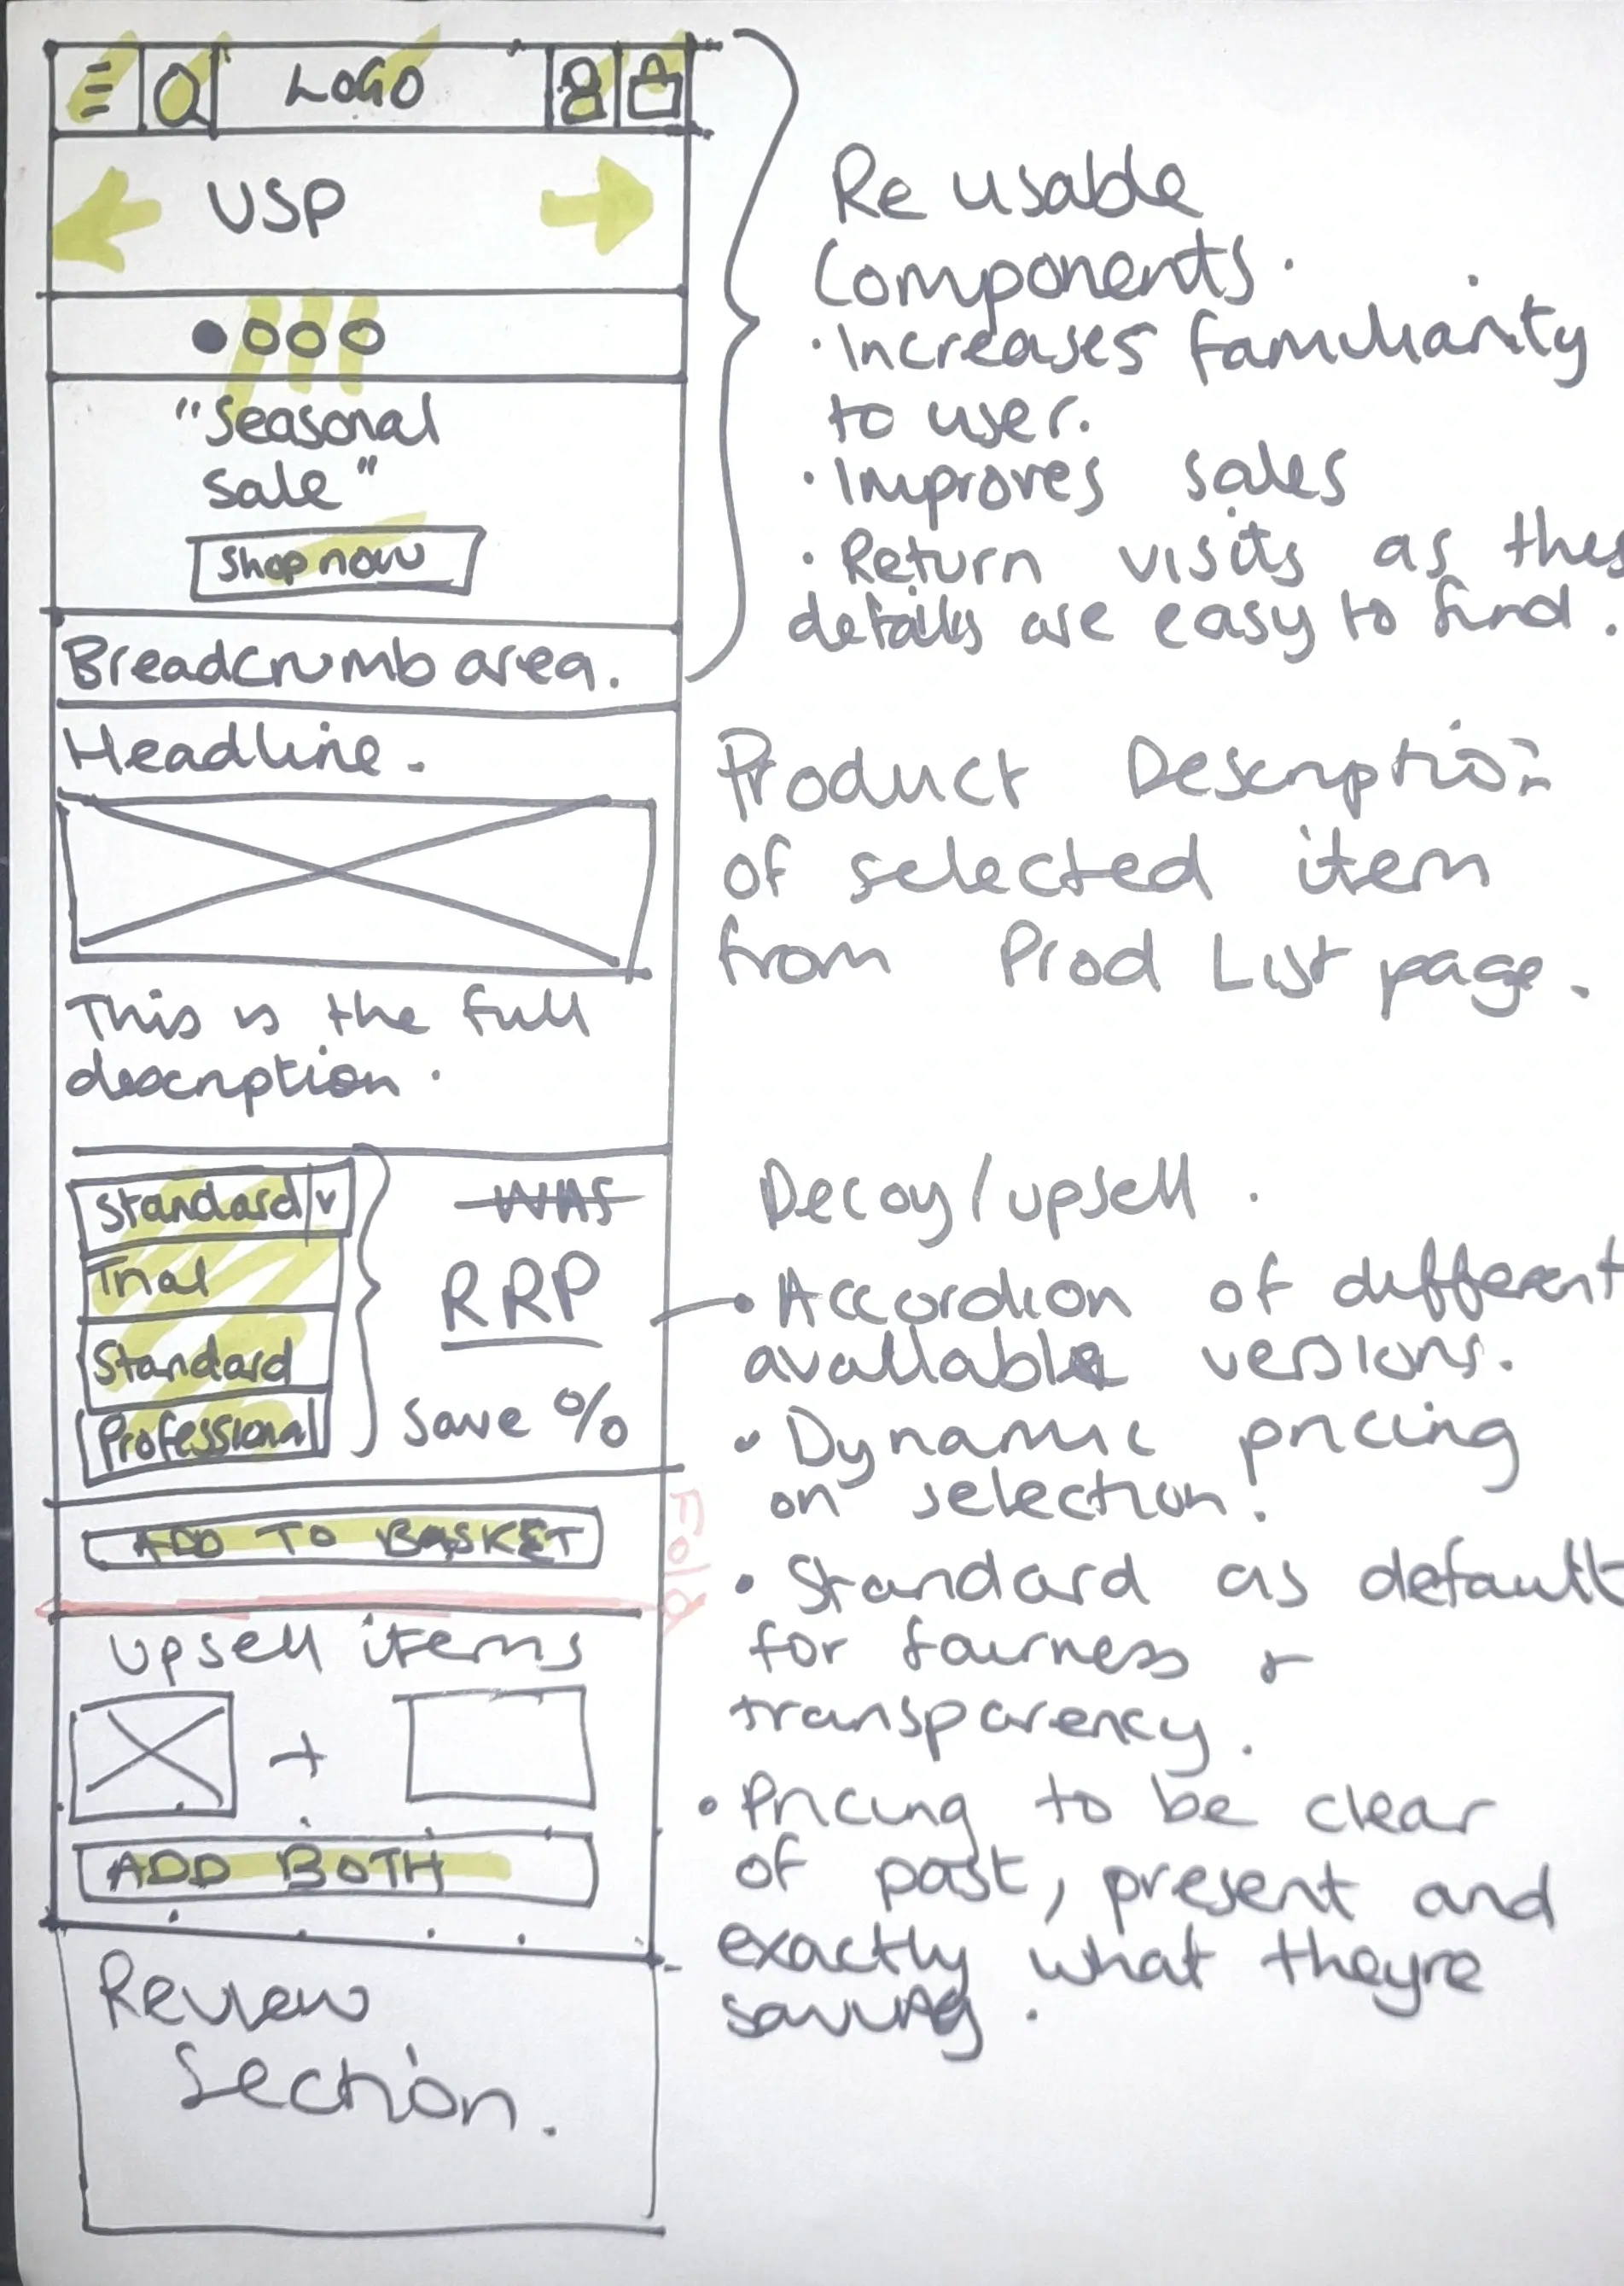 LOGO
USP
"Seasonal
sale"
Shop now
Breadcrumb area.
Headline.
This is the full
description.
Standard v
Trial
Standard
Professional
WAS
RRP
Save %
ADD TO BASKET
Fold
Upsell items
+
ADD BOTH
Review
Section.
Reusable
Components.
• Increases familiarity
to user.
• Improves sales
• Return visits as thes
details are easy to find.
Product Description
of selected item
from Prod List page.
Decoy/upsell.
• Accordion of different
available versions.
• Dynamic pricing
on selection.
• Standard as default
for fairness +
transparency.
• Pricing to be clear
of past, present and
exactly what theyre
saving.